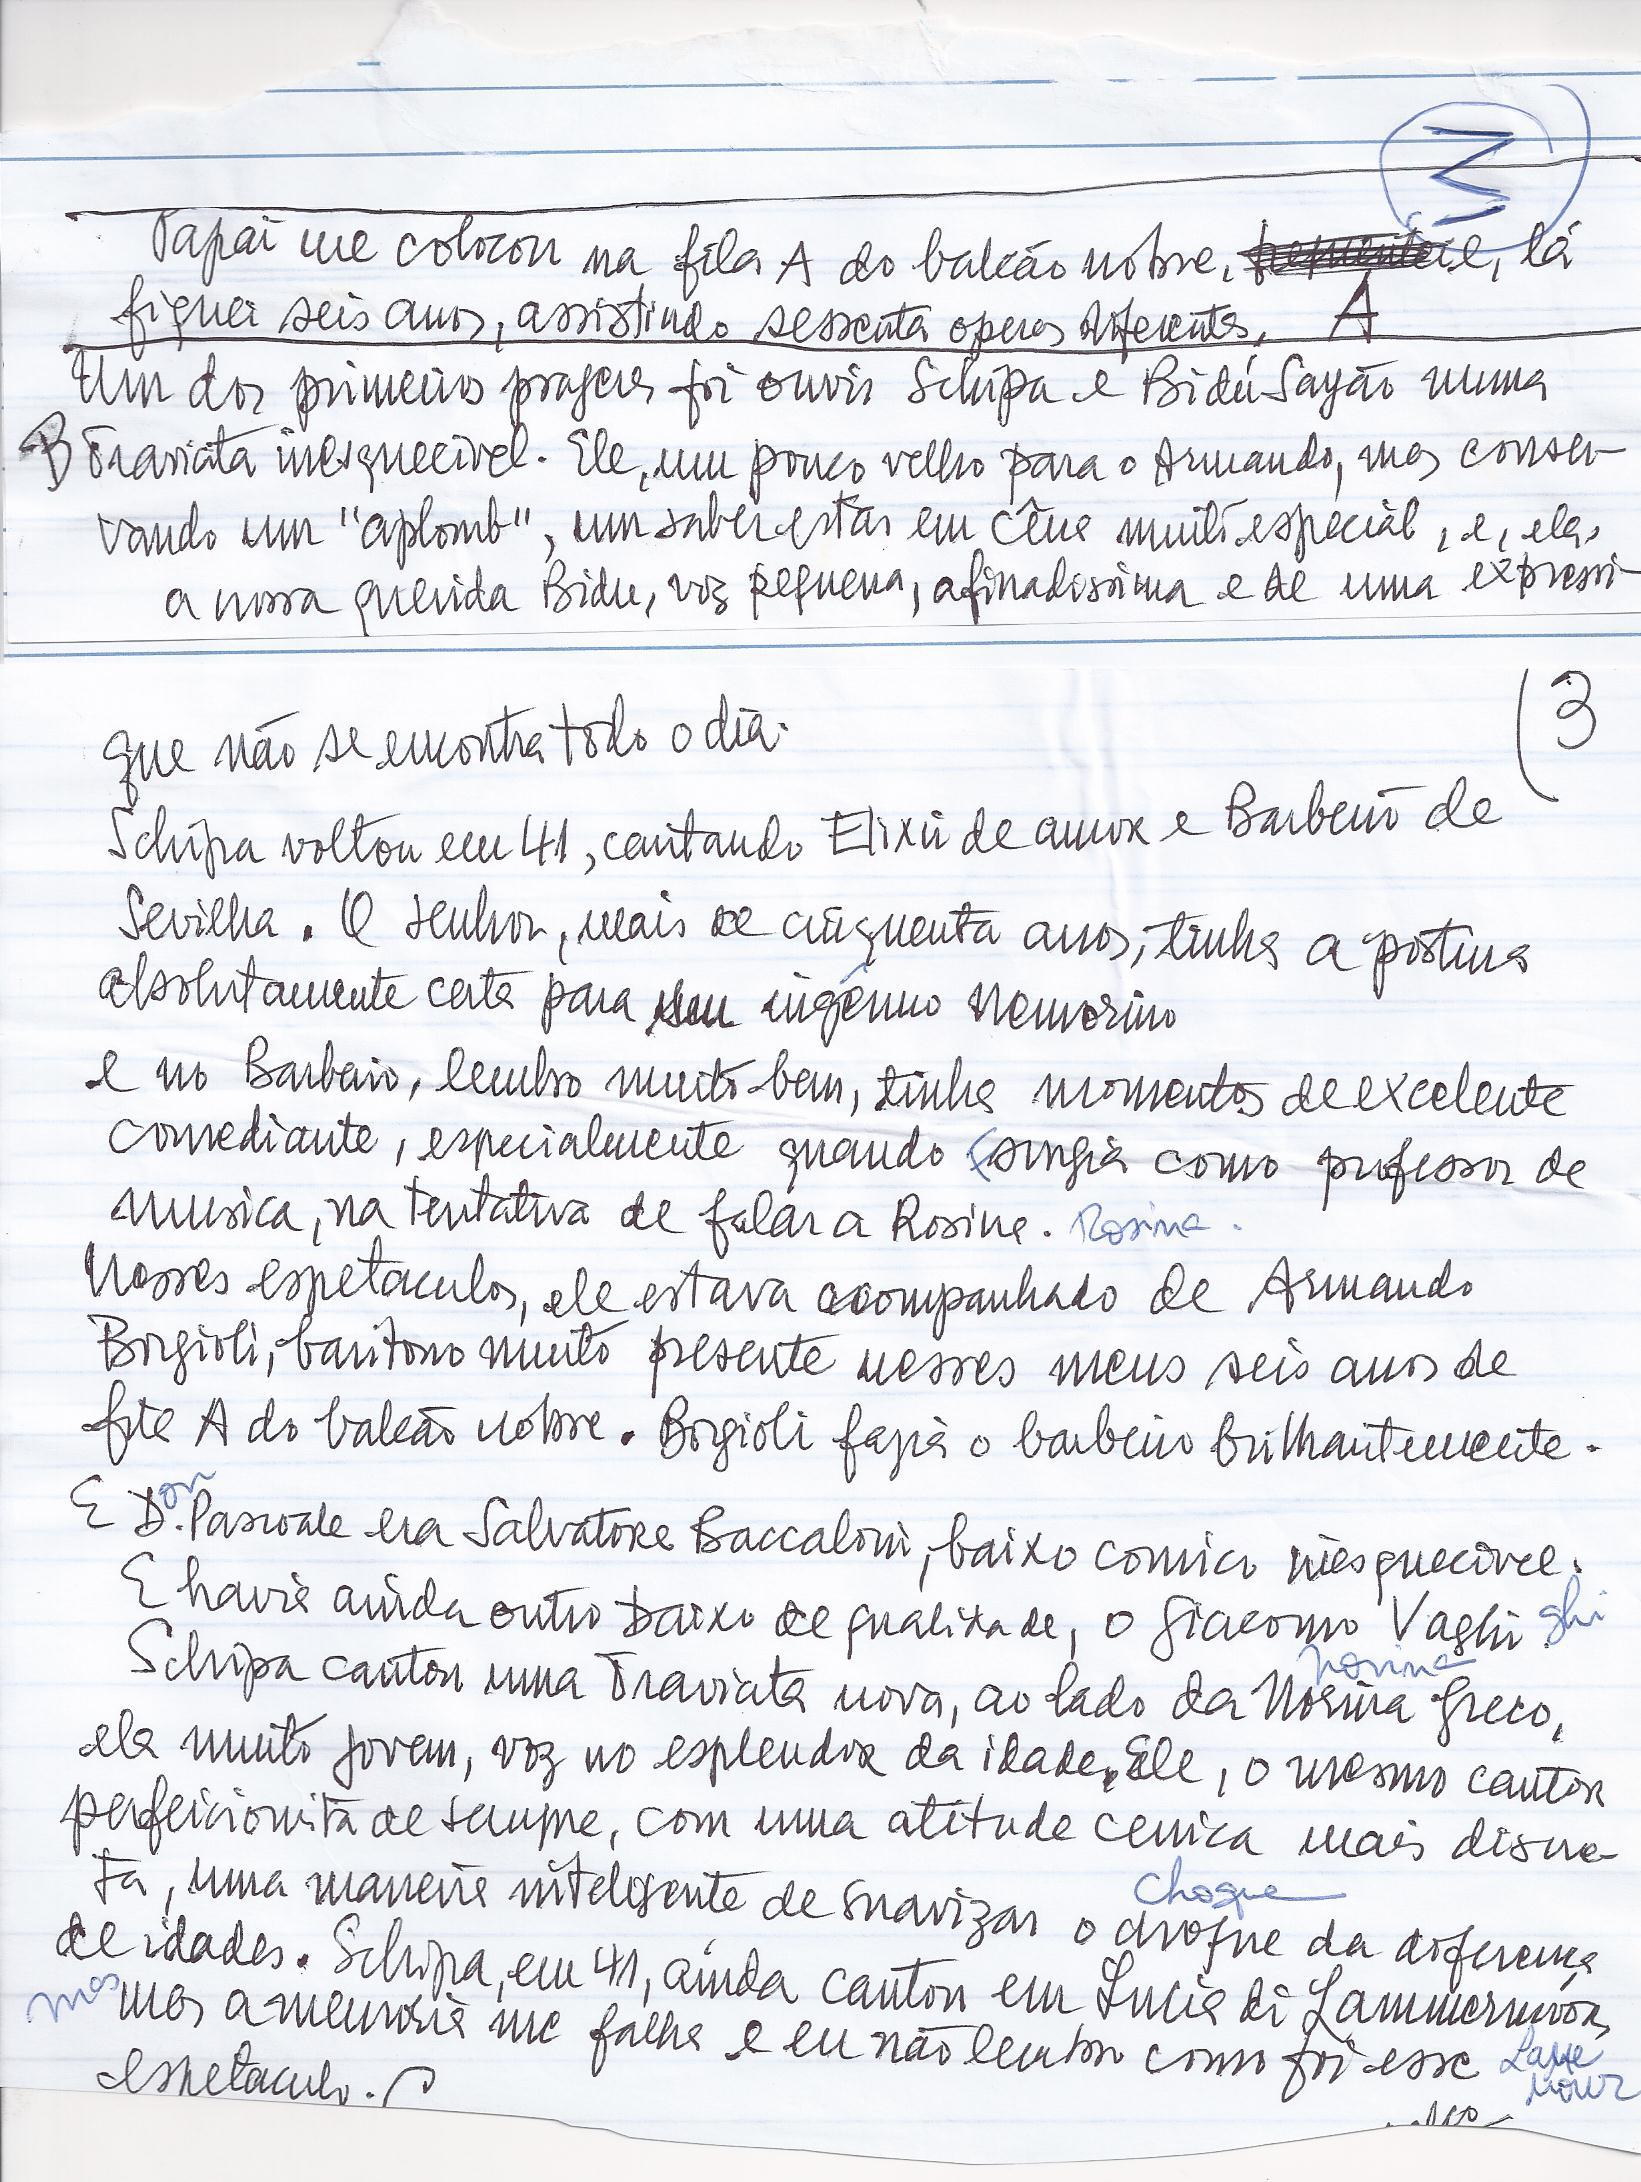 Papai me colocou na fila A do balcão nobre, e, lá
fiquei seis anos, assistindo sessenta operas diferentes. A
Um dos primeiros prazeres foi ouvir Schipa e Bidú Sayão numa
B Traviata inesquecivel. Ele, um pouco velho para o Armando, mas conser-
vando um "aplomb", um saber estar em cêna muito especial, e, ela,
a nossa querida Bidu, voz pequena, afinadissima e de uma expressi-
3
que não se encontra todo o dia.
Schipa voltou em 41, cantando Elixir de amor e Barbeiro de
Sevilha. O senhor, mais de cinquenta anos, tinha a postura
absolutamente certa para um ingênuo Nemorino
e no Barbeiro, lembro muito bem, tinha momentos de excelente
comediante, especialmente quando surgia como professor de
musica, na tentativa de falar a Rosina. Rosina.
Nesses espetaculos, ele estava acompanhado de Armando
Borgioli, baritono muito presente nesses meus seis anos de
fila A do balcão nobre. Borgioli fazia o barbeiro brilhantemente.
E D. on Pascoale era Salvatore Baccaloni, baixo comico inesquecivel.
E havia ainda outro baixo de qualidade, o Giacomo Vaghi ghi
Norina
Schipa cantou uma Traviata nova, ao lado da Norina Greco,
ela muito jovem, voz no esplendor da idade. Ele, o mesmo cantor
perfeicionista de sempre, com uma atitude cenica mais discre-
ta, uma maneira inteligente de suavizar o choque da diferença
choque
de idades. Schipa, em 41, ainda cantou em Lucia di Lammermoor,
mas mas a memória me falha e eu não lembro como foi esse
espetaculo.